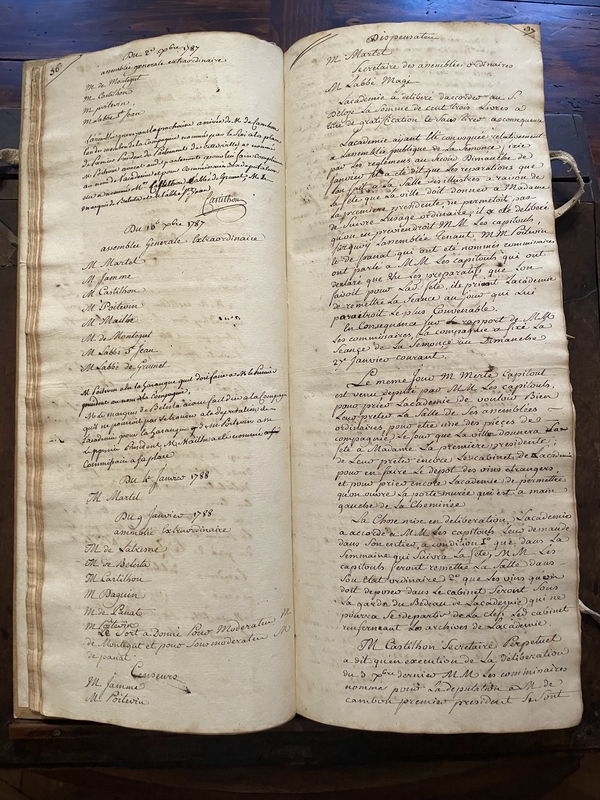 36
Du 2e xbre 1787
assemblée generale extraordinaire
M. de Montegut
M. Castilhon
M. poitevin
M. Labbé St jean
nommé par le Roi a la place
de premier President du
Castilhon
Du 16e xbre 1787
assemblée Generale Extraordinaire
M Martel
M Jamme
M Castilhon
M Poitevin
M Mailhe
M de Montegut
M Labbé St Jean
M Labbé de Grumet
M Poitevin a lu la harangue quil doit faire a M le Premier
president au nom de la Compagnie,
M le marquis de Belesta aiant fait dire a la Compagnie
quil ne pourroit pas se trouver a la deputation de
Lacademie pour la harangue que M Poitevin a
Le premier President, M. Mailhe a été nommé
Commissaire a sa place
Du 4e Janvier 1788
M Martel
Du 9 Janvier 1788
assemblée Extraordinaire
M de Lacesne
M de Belesta
M Castilhon
M Baquin
M de Panat
M Poitevin
Le Sort a Donné Pour Moderateur M
de Montegut et pour Sousmoderateur M
de panat
Censeurs
M Jamme
M. Poitevin
37
Dispensateur
M. Martel
Secretaire des assemblées ordinaires
M Labbé Magi
Lacademie a deliberé daccorder au S
La Somme de cent trois Livres a
titre de gratification le Sous tires
Lacademie ayant été convoquée relativement
a Lassemblée publique de La Semonce, fixée
par Les reglements au Second Dimanche de
Janvier, il a été dit que Les reparations que
Lon fait a La Salle des illustres a raison de
La fete que La ville doit donner a Madame
La premiere presidente, ne permetoit pas
de Suivre Lusage ordinaire, il a été deliberé
quon en previendroit M.M. Les capitouls,
Lassemblée Tenant, M.M. Poitevin
et de panat qui ont été nommés commissaires
ont parlé a M.M. Les capitouls qui ont
declaré que Les preparatifs que Lon
faisoit pour Lad. fete, ils prioient Lacademie
de remettre La Seance au jour qui Lui
paraitroit Le plus Convenable.
En Consequence Sur Le rapport de M.M.
Les commissaires, La compagnie a fixé La
Seance de La Semonce au Dimanche
27e Janvier courant.
Le meme Jour M Merle Capitoul
est venu deputé par M.M. Les capitouls,
pour prier Lacademie de vouloir Bien
Leur preter La Salle de Ses assemblées
ordinaires pour etre une des pieces de
compagnie, Le Jour que La ville donnera La
fete a Madame La premiere presidente;
de Leur preter encore Le cabinet de Lacademie
pour en faire Le depot des vins etrangers,
et pour prier encore Lacademie de permettre
quon ouvre La porte murée qui est a main
gauche de La Cheminée
La Chose mise en deliberation, Lacademie
a accordé a M.M. Les capitouls Leur demande
dans Son entier, a condition 1° que dans La
Semmaine qui Suivra La fete, M.M. Les
capitouls feront remettre La Salle dans
Son etat ordinaire 2° que Les vins quon
doit deposer dans Le cabinet Seront Sous
La garde du Bedeau de Lacademie qui ne
pourra Se departir de La clef, Led. cabinet
renfermant Les archives de Lacademie
M Castilhon Secretaire Perpetuel
a dit quen execution de La deliberation
du 3 xbre dernier M.M. Les commissaires
nommés pour La deputation a M. de
cambon premier president Se Sont